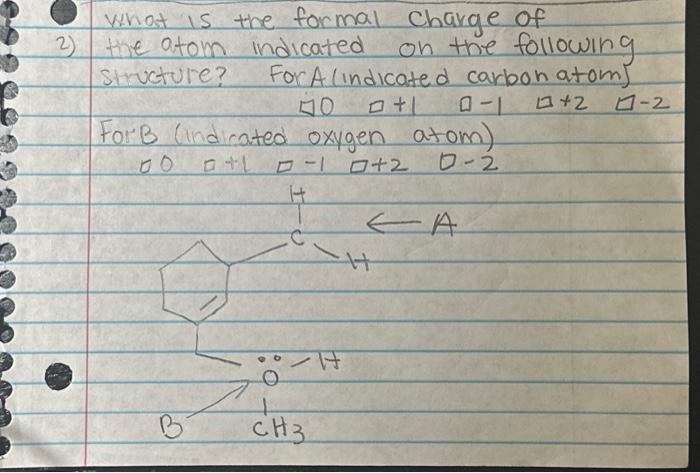 What is the formal charge of
2) the atom indicated on the following
structure? For A (indicated carbon atom)
□0 □+1 □-1 □+2 □-2
For B (indicated oxygen atom)
□0 □+1 □-1 □+2 □-2
H
C ← A
H
O - H
B CH3